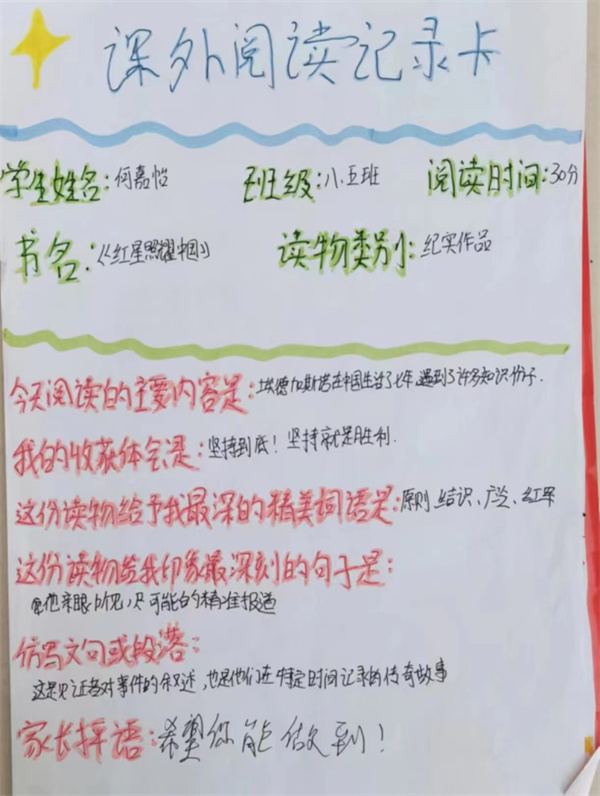 课外阅读记录卡
学生姓名：何嘉怡 班级：八.五班 阅读时间：30分
书名：《红星照耀中国》 读物类别：纪实作品
今天阅读的主要内容是：埃德加斯诺在中国生活了七年,遇到了许多知识份子.
我的收获体会是：坚持到底！坚持就是胜利.
这份读物给予我最深的精美词语是：原则、结识、广告、红军
这份读物给我印象最深刻的句子是：
他亲眼 可能的精准报道
仿写文句或段落：
这是见证者对事件的叙述,也是他们在特定时间记录的传奇故事
家长评语：希望你能做到！